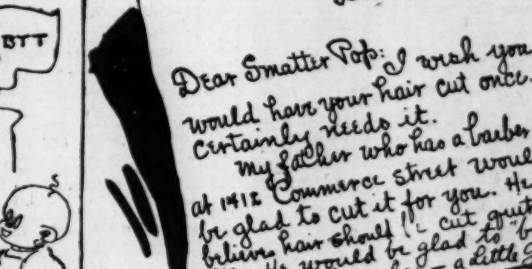 BTT
Dear Smatter Pop: I wish you
would have your hair cut once.
certainly needs it.
My father who has a barber
at 1412 Commerce street woul
be glad to cut it for you. He
believes hair should be cut quit
He would be glad to
a little